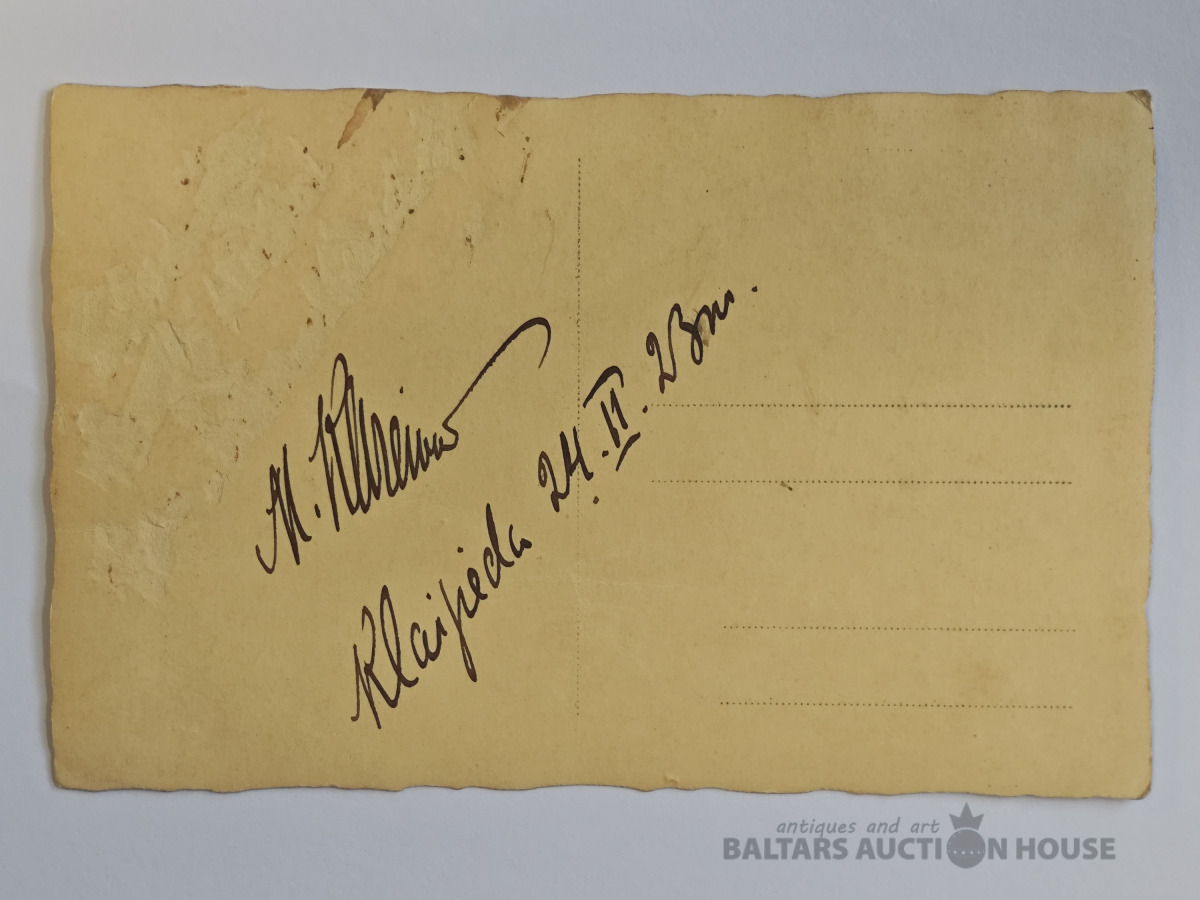 M.
Klaipeda 24.II.23m.
antiques and art
BALTARS AUCTION HOUSE